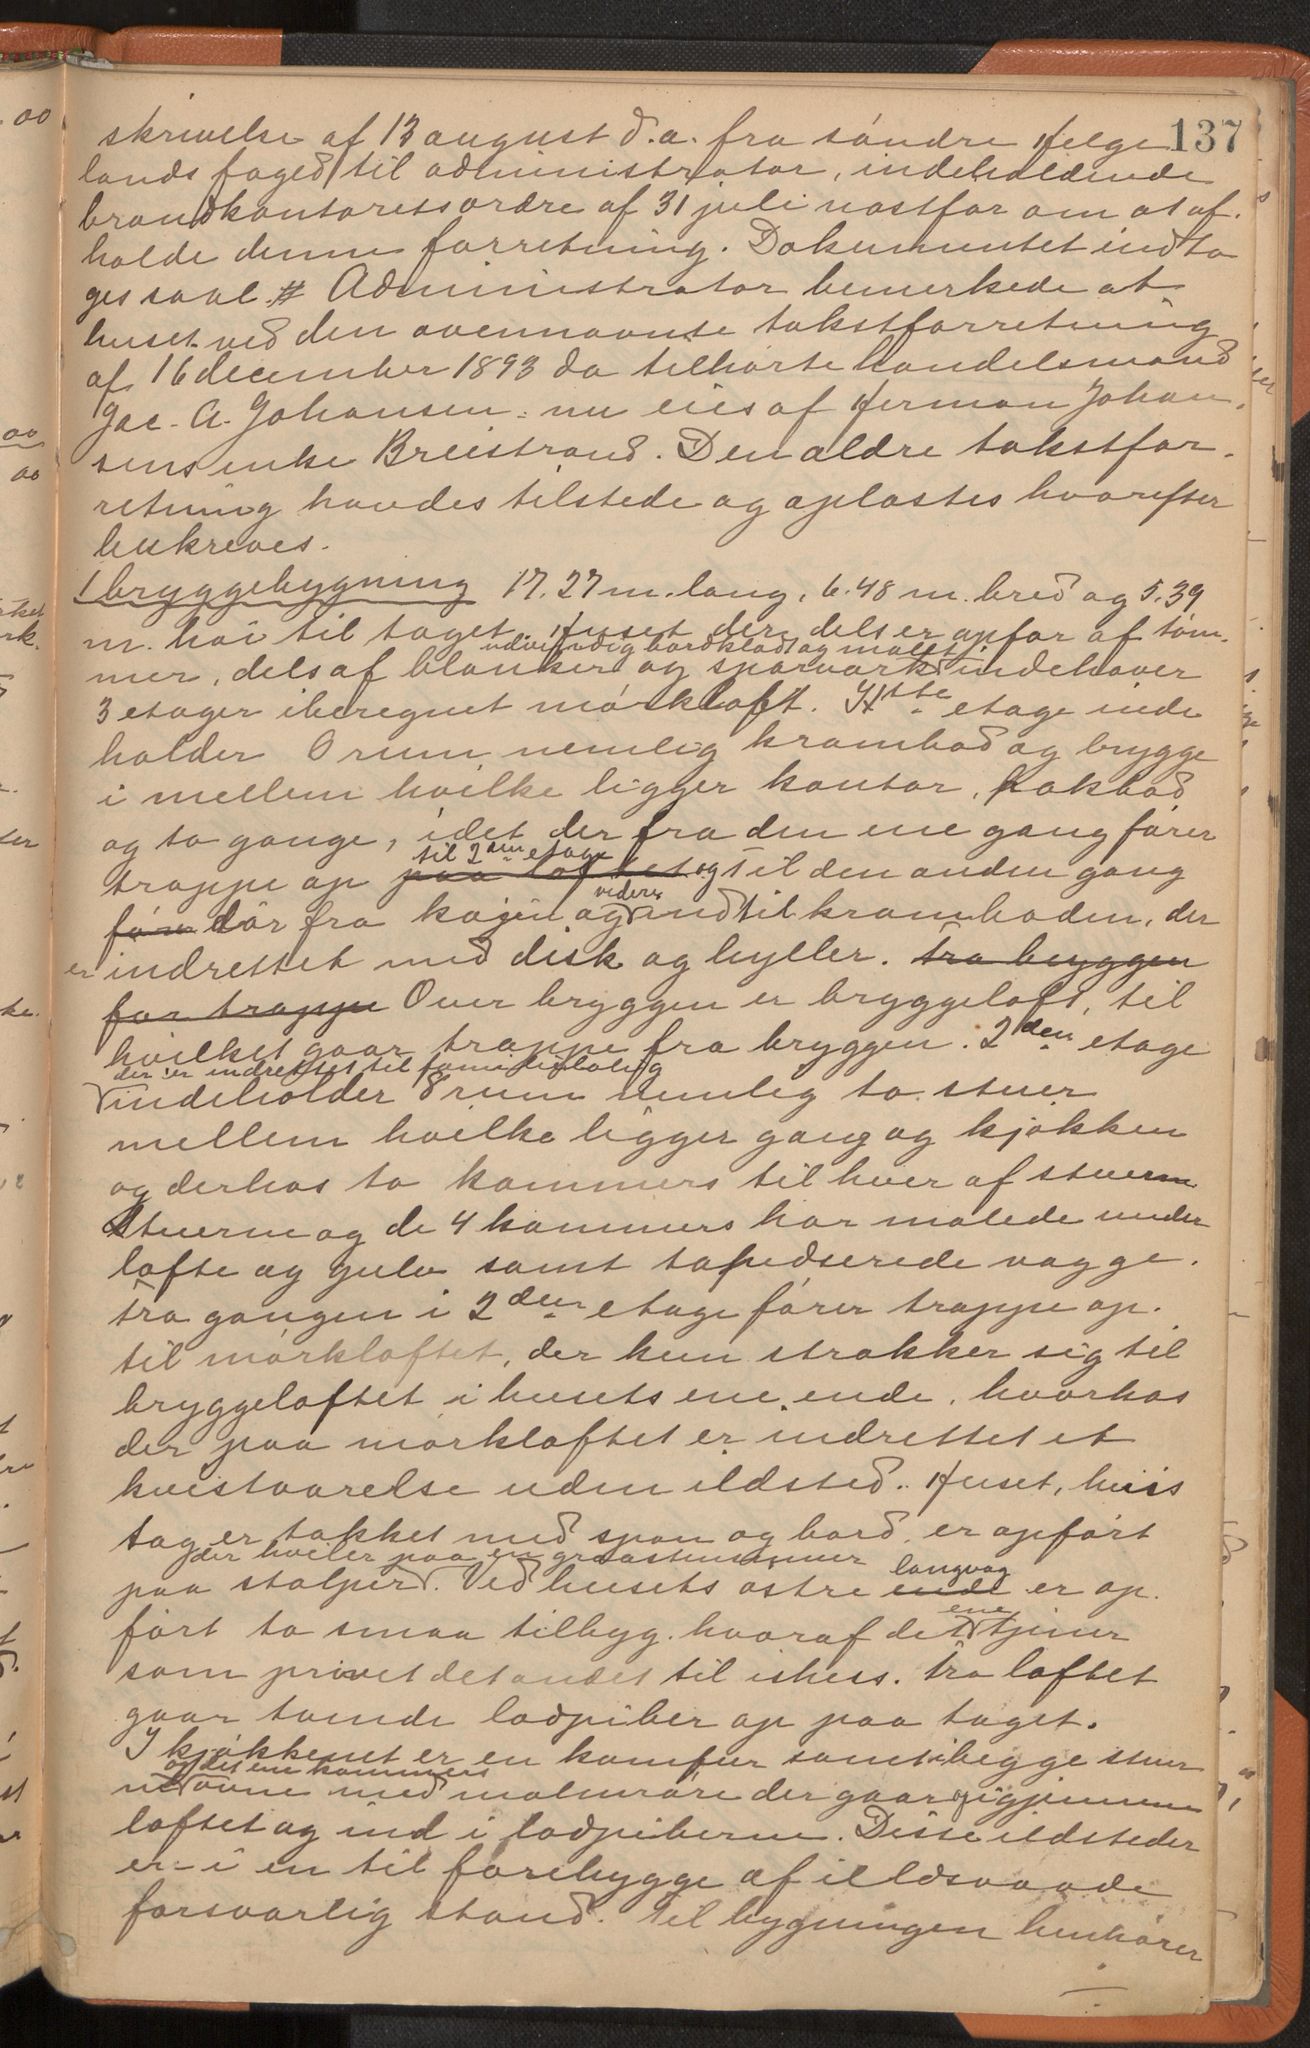 137
skrivelse af 13 august d.a. fra søndre Helge
lands foged til administrator, indeholdende
brandkontoretsordre af 31 juli næstfør om at af-
holde denne forretning. Dokumentet indto
ges saal. # Administrator bemerkede at
huset ved den ovennævnte takstforretning
af 16 december 1893 da tilhørte handelsmand
Jac. A. Johansen nu eies af Herman Johan-
sens enke Breistrand. Den ældre takstfor-
retning havdes tilstede og oplæstes hvorefter
beskreves.
1 bryggebygning 17.27 m. lang, 6.48 m. bred og 5.39
m. høi til taget. Huset der dels er opfør af tøm-
udvendig bordklædt og malet,
mer, dels af blanker og sparværk indehaver
3 etager iberegnet mørkloft. 1ste etage inde
holder 0 rum nemlig krambod og brygge
i mellem hvilke ligger kontor, pakbod
og to gange, idet der fra den ene gang fører
til 2den etage
trappe op paa loftet og til den anden gang
videre
føre dør fra kajen og ind til kramboden, der
er indrettet med disk og hyller. Fra bryggen
før trappe Over bryggen er bryggeloft, til
hvilket gaar trappe fra bryggen. 2den etage
der er indrettet til familiebolig
indeholder 8 rum nemlig to stuer
mellem hvilke ligger gang og kjøkken
og derhos to kammers til hver af stuerne
Stuerne og de 4 kammers har malede under
lofte og gulv samt tapedserede vægge.
Fra gangen i 2den etage fører trappe op
til mørkloftet, der kun strækker sig til
bryggeloftet i husets ene ende, hvorhos
der paa mørkloftet er indrettet et
kvistværelse uden ildsted. Huset, hvis
tag er tækket med spon og bord er opført
der hviler paa en graastensmur
langvæg
paa stolper. Ved husets østre ende er op-
ene
ført to smaa tilbyg. hvoraf det tjener
som privet det andet til ishus. Fra loftet
gaar tvende lodpiber op paa taget.
I kjøkkenet er en komfur samt i begge stuer
og det ene kammers
ne ovne med malmrøre der gaar igjennem
loftet og ind i lodpiberne. Disse ildsteder
er i en til forebygge af ildsvaade
forsvarlig stand. Til bygningen henhører